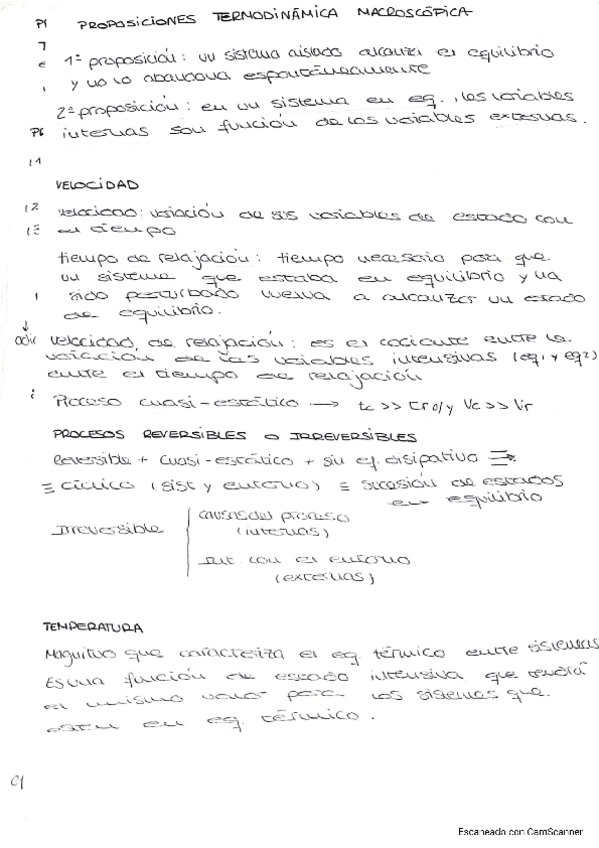 PROPOSICIONES TERMODINÁMICA MACROSCÓPICA
1ª proposición: un sistema aislado alcanza el equilibrio
y no lo abandona espontáneamente
2ª proposición: en un sistema en eq., las variables
internas son función de las variables externas.
VELOCIDAD
velocidad: variación de sus variables de estado con
el tiempo
tiempo de relajación: tiempo necesario para que
un sistema que estaba en equilibrio y ha
sido perturbado vuelva a alcanzar un estado
de equilibrio.
velocidad de relajación: es el cociente entre la
variación de las variables intensivas (eq1 y eq2)
entre el tiempo de relajación
Proceso cuasi-estático → tc >> tr o/y Vc >> Vr
PROCESOS REVERSIBLES O IRREVERSIBLES
Reversible + cuasi-estático + sin ef. disipativo
≡ cíclico (sist y entorno) ≡ sucesión de estados
en equilibrio
Irreversible
causas del proceso
(internas)
int con el entorno
(externas)
TEMPERATURA
Magnitud que caracteriza el eq. térmico entre sistemas
Es una función de estado intensiva que tendrá
el mismo valor para los sistemas que
estén en eq. térmico.
Escaneado con CamScanner